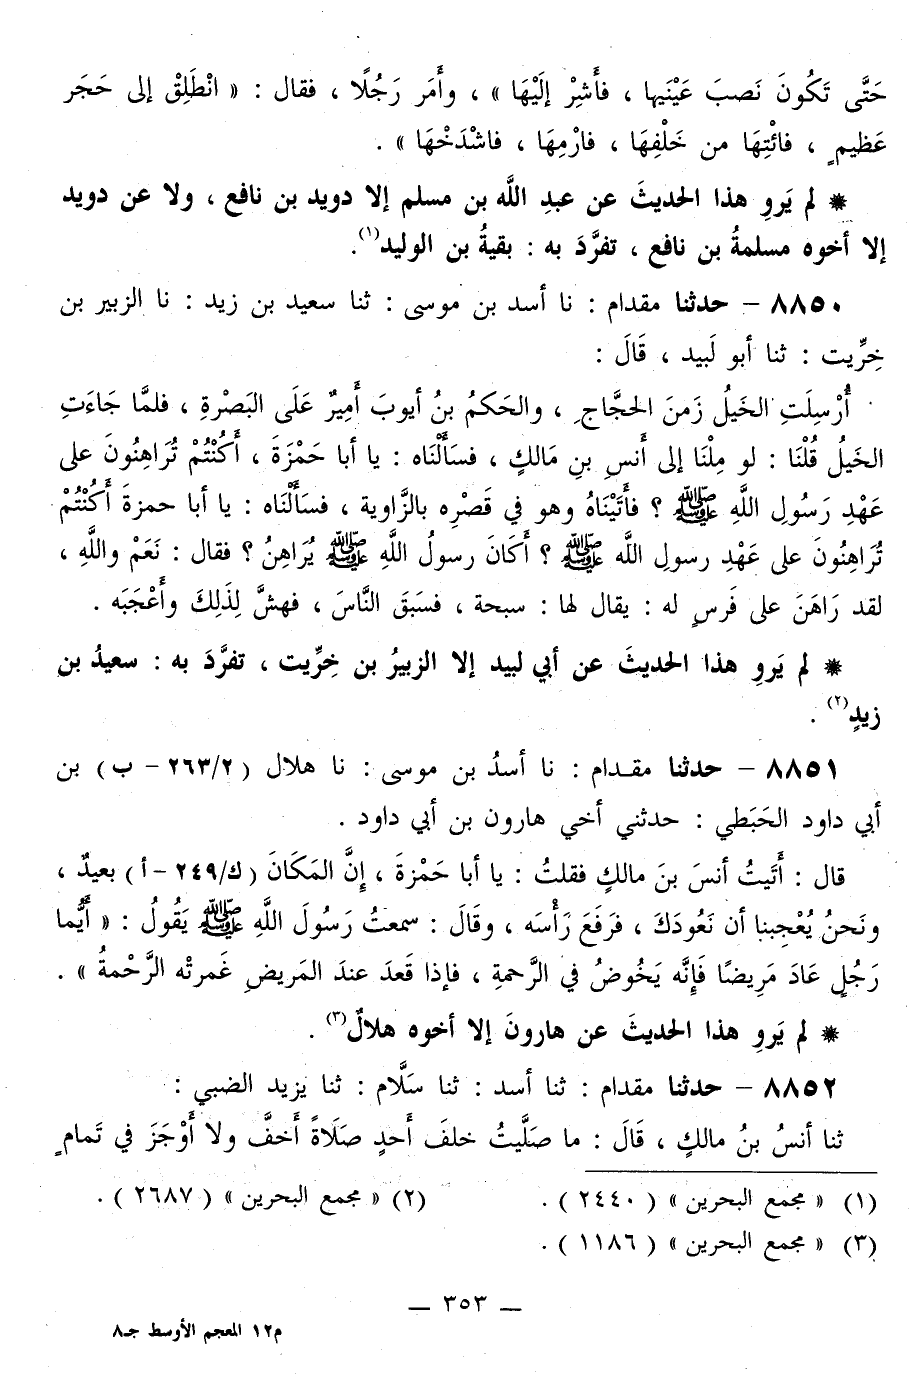 حَتَّى تَكُونَ نَصبَ عَيْنَيها ، فأَشِرْ إلَيْهَا » ، وأَمَر رَجُلًا ، فقال : « انْطَلِقْ إلى حَجَر
عَظيمٍ ، فائْتِهَا من خَلْفِهَا ، فارْمِهَا ، فاشْدَخْهَا » .
* لم يَروِ هذا الحديثَ عن عبدِ اللَّه بن مسلم إلا دويد بن نافع ، ولا عن دويد
إلا أخوه مسلمةُ بن نافع ، تفرَّدَ به : بقيةُ بن الوليد(١).
٨٨٥٠ – حدثنا مقدام : نا أسد بن موسى : ثنا سعيد بن زيد : نا الزبير بن
خِرِّيت : ثنا أبو لَبيد ، قَالَ :
أُرْسِلَتِ الخَيلُ زَمنَ الحجَّاجِ ، والحَكمُ بنُ أيوبَ أَمِيرٌ عَلَى البَصْرةِ ، فلمَّا جَاءَتِ
الخيلُ قُلْنَا : لو مِلْنَا إلى أَنسِ بنِ مَالكٍ ، فسَأَلْنَاه : يا أبا حَمْزَةَ ، أَكُنْتُمْ تُرَاهِنُونَ على
عَهْدِ رَسُولِ اللَّهِ ﷺ ؟ فأَتَيْنَاهُ وهو في قَصْرِه بالزَّاوية ، فسأَلْنَاه : يا أبا حمزةَ أَكُنْتُمْ
تُرَاهِنُونَ على عَهْدِ رسولِ اللَّه ﷺ ؟ أَكَانَ رسولُ اللَّهِ ﷺ يُرَاهِنُ ؟ فقال : نَعَمْ واللَّهِ ،
لقد رَاهَنَ على فَرسٍ له : يقال لها : سبحة ، فسَبَقَ النَّاسَ ، فهشَّ لِذَلِكَ وأَعْجَبَه .
* لم يَروِ هذا الحديثَ عن أبي لبيد إلا الزبيرُ بن خِرِّيت ، تفرَّدَ به : سعيدُ بن
زيدٍ(٢) .
٨٨٥١ – حدثنا مقدام : نا أسدُ بن موسى : نا هلال ( ٢٦٣/٢ – ب ) بن
أبي داود الحَبَطي : حدثني أخي هارون بن أبي داود .
قال : أَتَيتُ أنسَ بنَ مالكٍ فقلتُ : يا أبا حَمْزةَ ، إنَّ المَكَانَ ( ك/٢٤٩ – أ ) بعيدٌ ،
ونَحنُ يُعْجِبنا أن نَعُودَكَ ، فرَفَعَ رَأْسَه ، وقَالَ : سمعتُ رَسُولَ اللَّهِ ﷺ يَقُولُ : « أَيُّما
رَجُلٍ عَادَ مَرِيضًا فَإِنَّه يَخُوضُ في الرَّحمةِ ، فإذا قَعدَ عندَ المَريضِ غَمرتْه الرَّحْمةُ » .
* لم يَروِ هذا الحديثَ عن هارونَ إلا أخوه هلالٌ(٣) .
٨٨٥٢ – حدثنا مقدام : ثنا أسد : ثنا سَلَّام : ثنا يزيد الضبي :
ثنا أنسُ بنُ مالكٍ ، قَالَ : ما صَلَّيتُ خلفَ أَحدٍ صَلَاةً أَخفَّ ولا أَوْجَزَ في تَمامٍ
(١) « مجمع البحرين » ( ٢٤٤٠ ) . (٢) « مجمع البحرين » ( ٢٦٨٧ ) .
(٣) « مجمع البحرين » ( ١١٨٦ ) .
— ٣٥٣ —
م١٢ المعجم الأوسط جـ٨